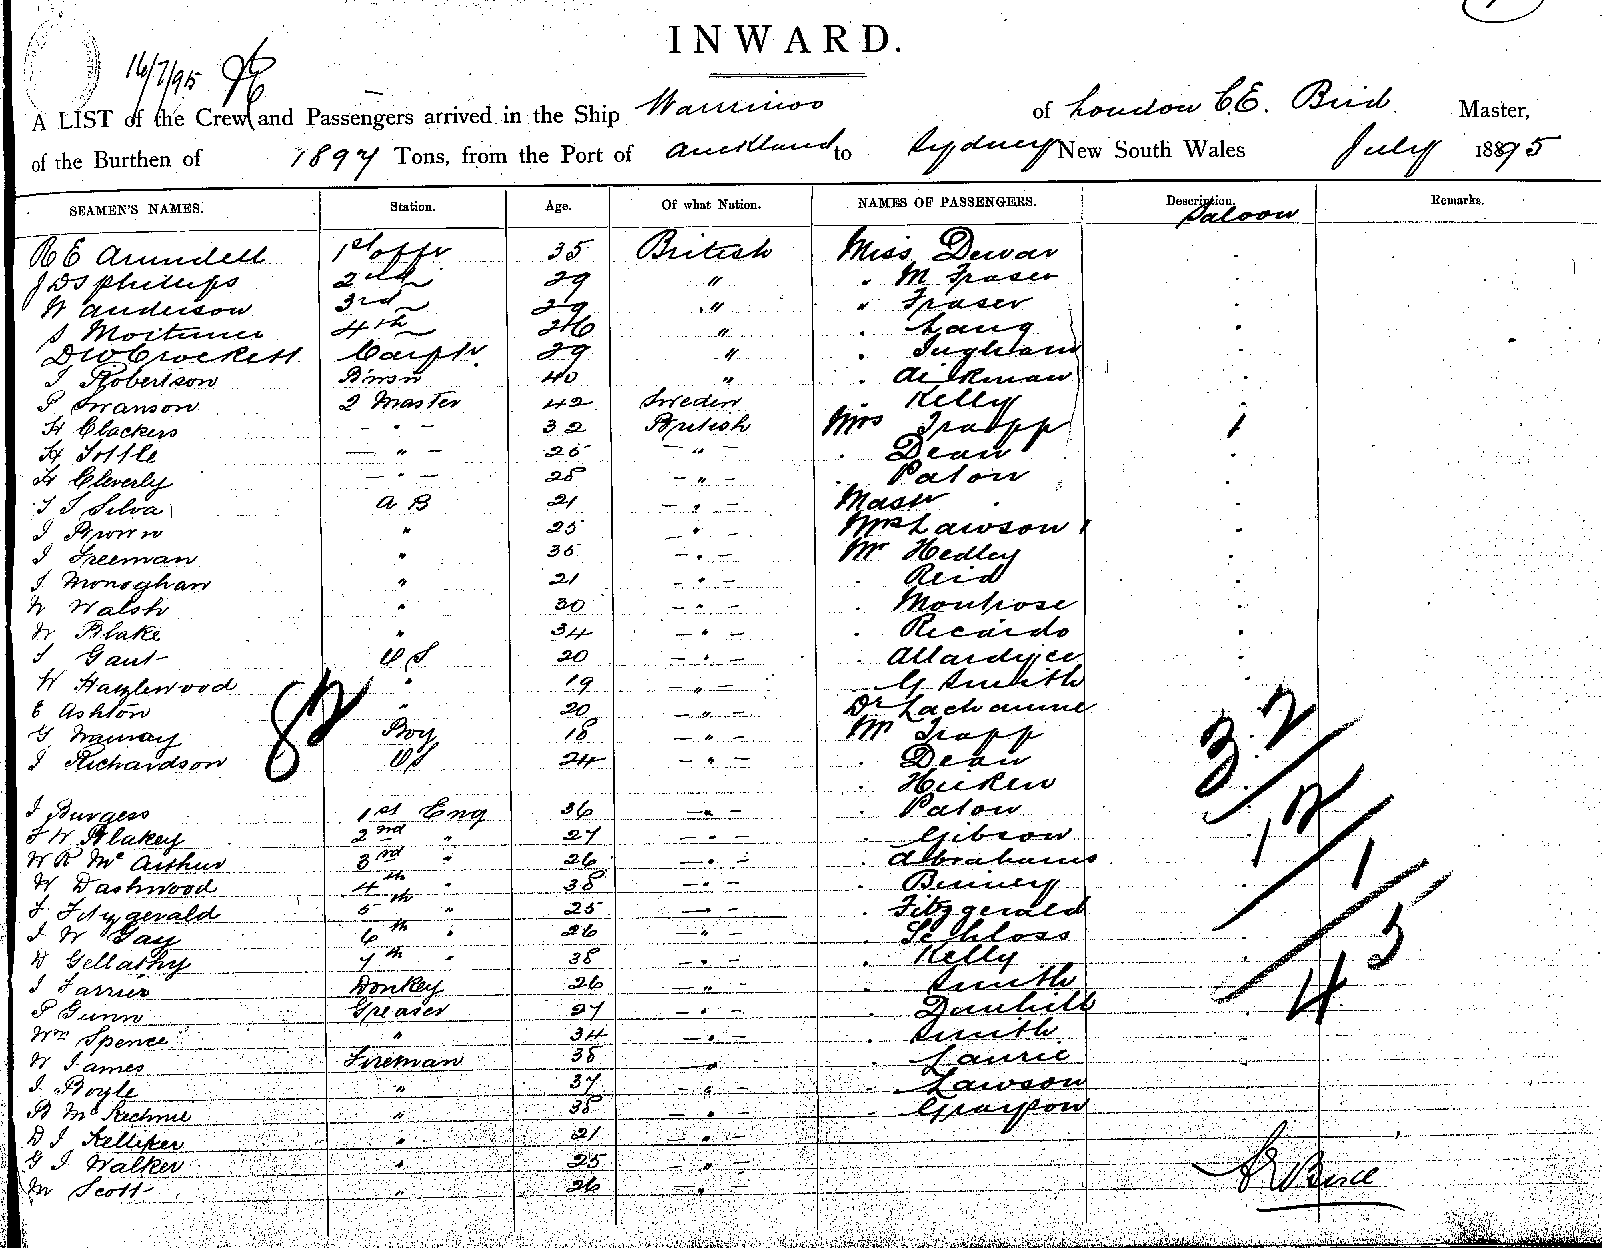 INWARD.
16/7/95
A LIST of the Crew and Passengers arrived in the Ship Warrimoo of London C.E. Bird Master,
of the Burthen of 1897 Tons, from the Port of Auckland to Sydney New South Wales July 1895
SEAMEN'S NAMES. Station. Age. Of what Nation. NAMES OF PASSENGERS. Description. Remarks.
Saloon
R E Arundell 1st offr 35 British Miss Dewar
J D S Phillips 2nd 29 " " M Fraser
W Anderson 3rd 29 " " Fraser
S Mortimer 4th 26 " . Lang
D W Crockett Carptr. 29 " . Ingham
J Robertson B'swn 40 " . Aickman
P Swanson 2 Master 42 Sweden . Kelly
H Clackers - " - 32 British Mrs Trapp 1
H Tottle - " - 25 - " - . Dean
H Cleverly - " - 28 - " - . Paton
J S Silva A B 21 - " - Mastr
J Brown " 25 - " - Mrs Lawson 1
J Freeman " 35 - " - Mr Hedley
J Monoghan " 21 - " - . Reid
W Walsh " 30 - " - . Montrose
W Blake " 34 - " - . Ricardo
J Gaut O S 20 - " - . Allardyce
W Hazlewood " 19 - " - . G Smith
E Ashton " 20 - " - Dr Lachaume
G Boy 18 - " - Mr Trapp
J Richardson O S 24 - " - . Dean
82
. Hicken
32
J Burgess 1st Eng 36 - " - . Paton
F W Blakey 2nd " 27 - " - . Gibson
12
W R McArthur 3rd " 26 - " - . Abrahams
W Dashwood 4th " 38 - " - . Binney
1
F Fitzgerald 5th " 25 - " - . Fitzgerald
J W Gay 6th " 26 - " - . Schloss
D Gellatly 7th " 38 - " - . Kelly
45
J Farrier Donkey 26 - " - . Smith
P Gunn Greaser 27 - " - . Dunhill
Wm Spence " 34 - " - . Smith
W James Fireman 38 " . Laurie
J Boyle " 37 - " - . Lawson
R McKechnie " 38 - " - . Grayson
D J Kelliher " 21 - " -
G J Walker " 25 - " -
M Scott " 26 - " -
CE Bird